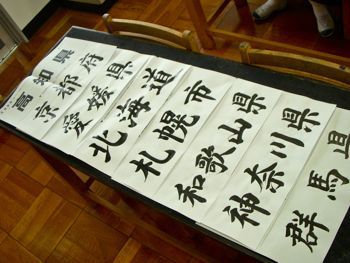 高知県
京都府
愛媛県
北海道
札幌市
和歌山県
神奈川県
群馬県